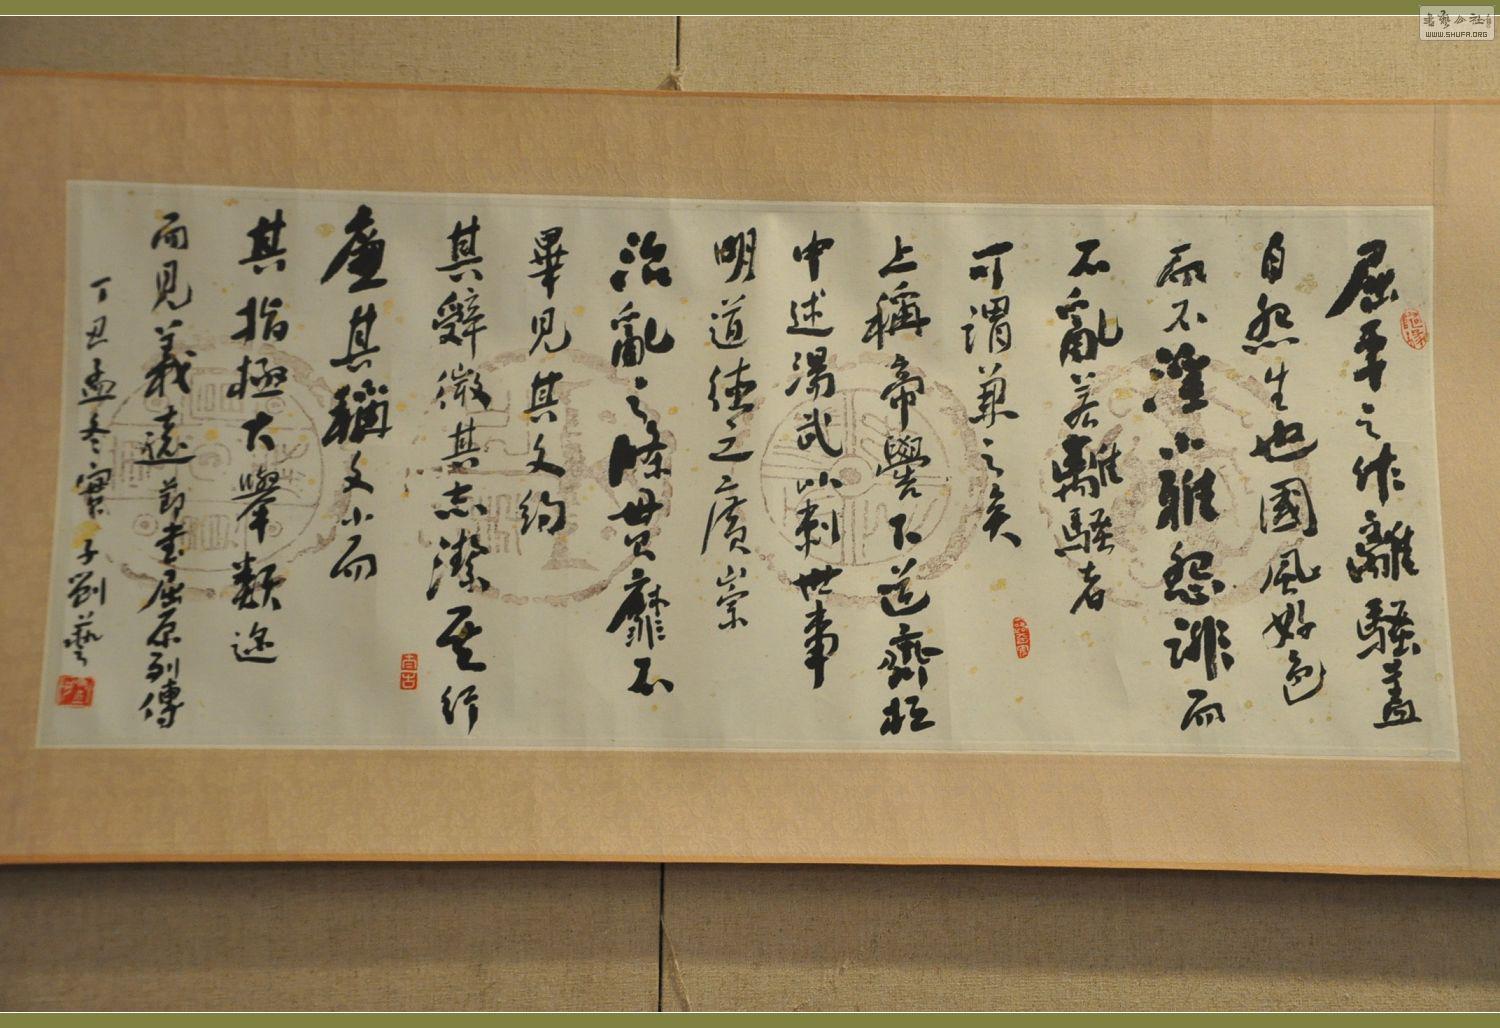 屈平之作離騷蓋
自怨生也國風好色
而不淫小雅怨誹而
不亂若離騷者
可謂兼之矣
上稱帝嚳下道齊桓
中述湯武以刺世事
明道德之廣崇
治亂之條毌貫靡不
畢見其文約
其辭微其志潔其行
廉其稱文小而
其指極大舉類迩
而見義遠 節書屈原列傳
丁丑孟冬寶子劉藝
書藝公社
WWW.SHUFA.ORG